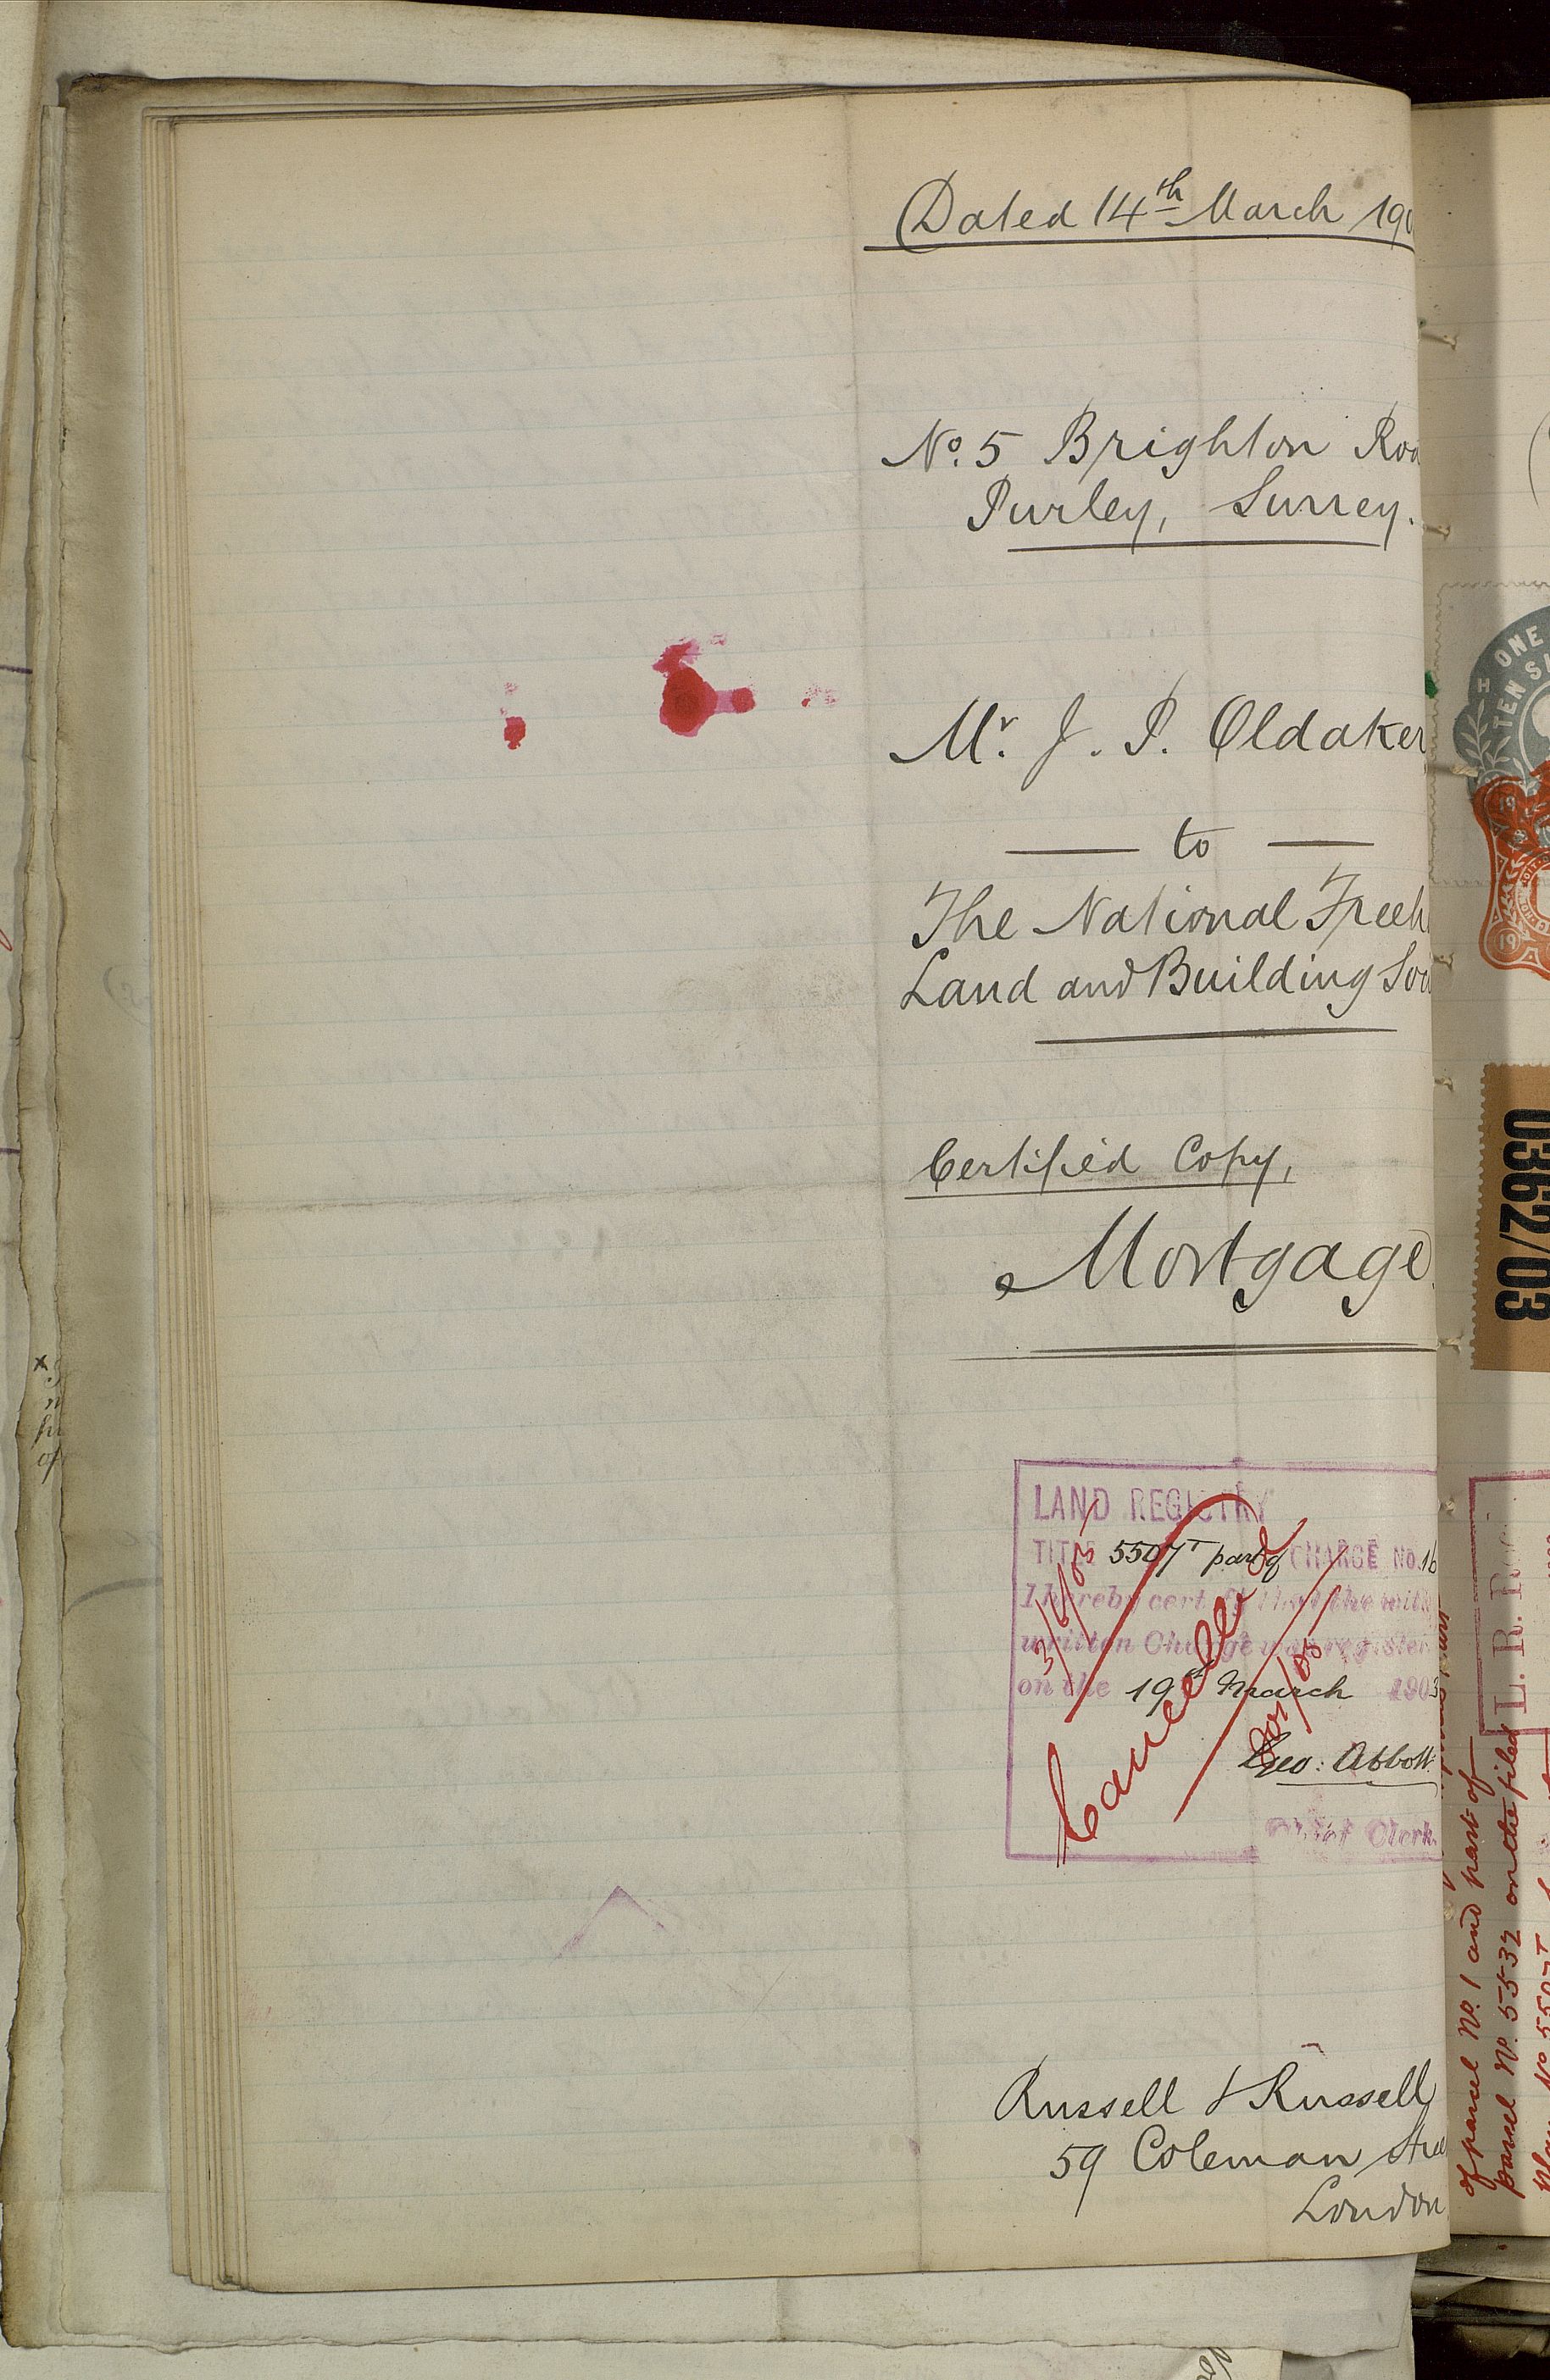 Dated 14th March 190
No. 5 Brighton Roa
Purley, Surrey.
Mr. J. P. Oldaker
to
The National Freeh
Land and Building Soc
Certified Copy,
Mortgage
LAND REGISTRY
TITLE 5507T part of CHARGE No. 16
I hereby certify that the with
written Charge was register
on the 19th March 1903
Geo: Abbott
Chief Clerk
Cancelled
Russell & Russell
59 Coleman Stree
London
ONE
TEN S
H
19
19
0362/03
L. R.
of parcel No. 1 and part of
parcel No. 5532 on the filed
Plan No 5507T